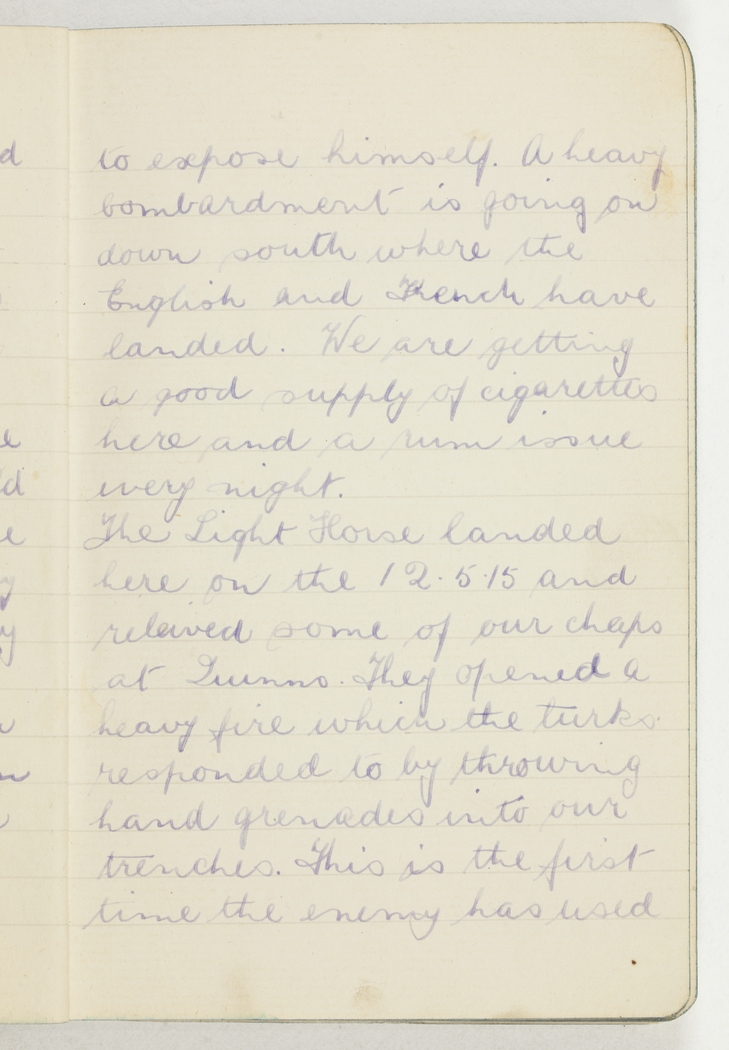 to expose himself. A heavy
bombardment is going on
down south where the
English and French have
landed. We are getting
a good supply of cigarettes
here and a rum issue
every night.
The Light Horse landed
here on the 12.5.15 and
releived some of our chaps
at Quinns. They opened a
heavy fire which the turks
responded to by throwing
hand grenades into our
trenches. This is the first
time the enemy has used